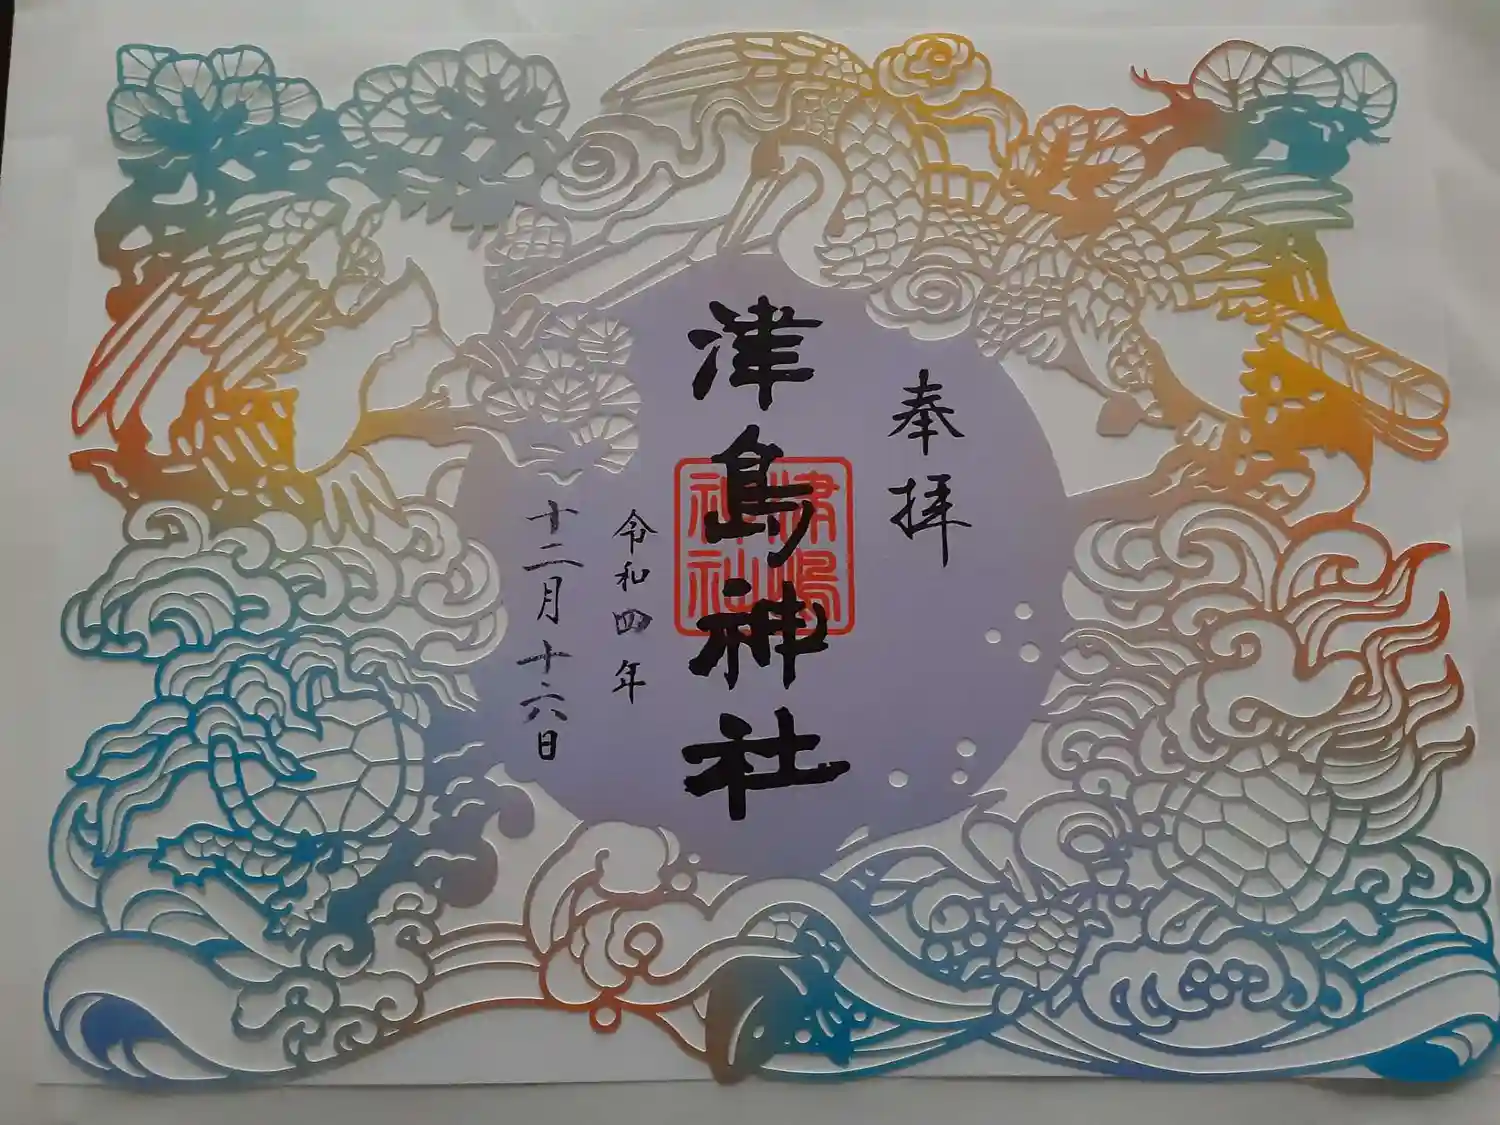 奉拝
津島神社
津嶋
神社
令和四年
十二月十六日